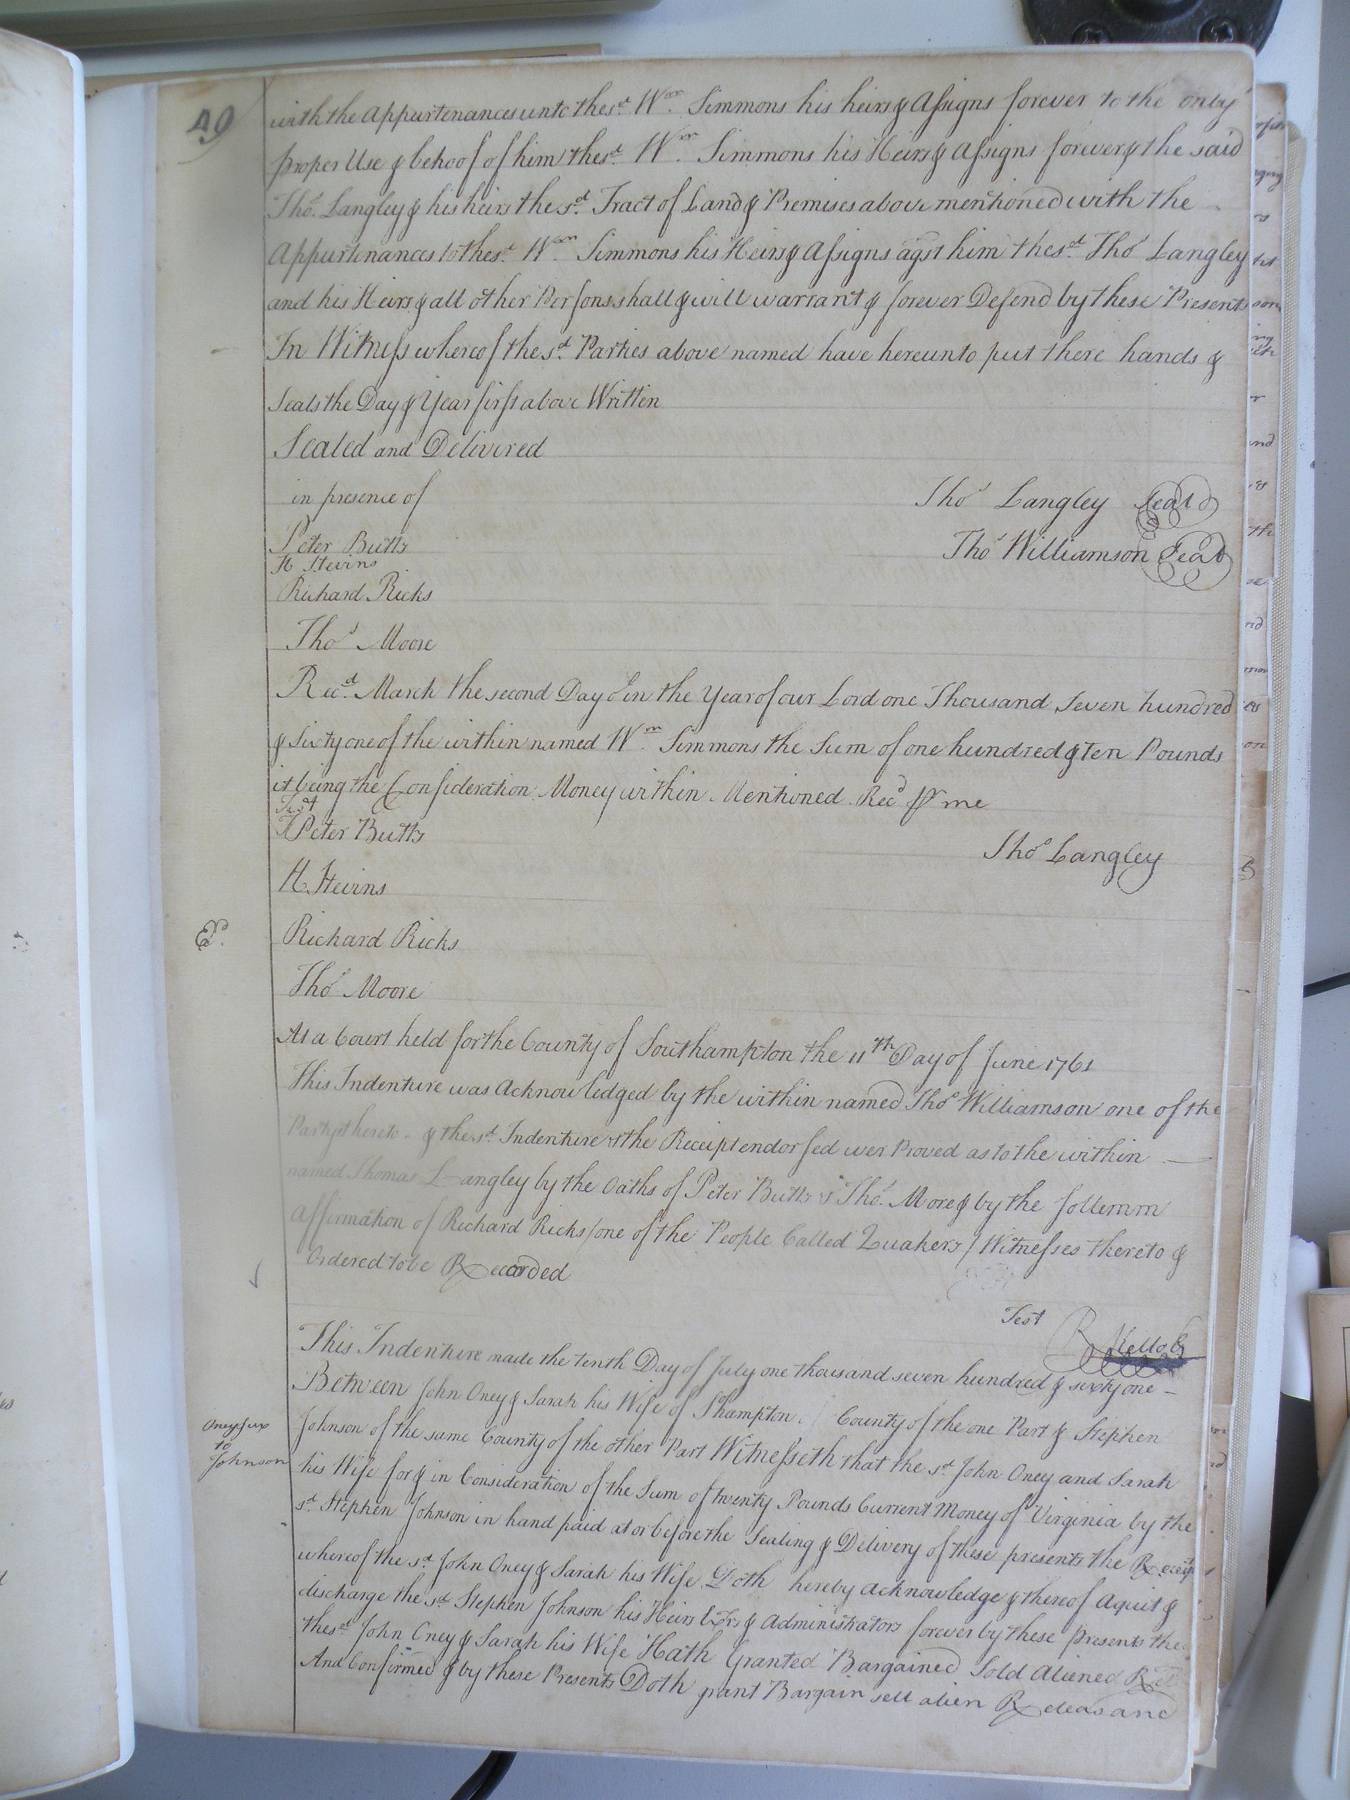 49
with the Appurtenances unto the sd. Wm. Simmons his heirs & Assigns forever to the only
proper Use & behoof of him the sd. Wm. Simmons his Heirs & Assigns forever & the said
Thos. Langley & his heirs the sd. Tract of Land & Premises above mentioned with the
Appurtenances to the sd. Wm. Simmons his Heirs & Assigns agst him the sd. Thos Langley
and his Heirs & all other Persons shall & will warrant & forever Defend by these Presents
In Witness whereof the sd. Parties above named have hereunto put there hands &
Seals the Day & Year first above Written
Sealed and Delivered
in presence of
Thos Langley Seal
Peter Butts
Thos Williamson Seal
H Stevins
Richard Ricks
Thos Moore
Recd. March the second Day in the Year of our Lord one Thousand Seven hundred
& Sixty one of the within named Wm. Simmons the Sum of one hundred & Ten Pounds
it being the Consideration Money within Mentioned Recd pr me
Test
Peter Butts
Thos Langley
H. Stevins
Exd.
Richard Ricks
Thos Moore
At a Court held for the County of Southampton the 11th Day of June 1761
This Indenture was Acknowledged by the within named Thos Williamson one of the
Partys thereto & the sd. Indenture & the Receipt endorsed wer Proved as to the within
named Thomas Langley by the Oaths of Peter Butts & Thos. More & by the sollemm
Affirmation of Richard Ricks / one of the People Called Quakers / Witnesses thereto &
Ordered to be Recorded
Test
R Kello Ck
This Indenture made the tenth Day of July one thousand seven hundred & sixty one
Between John Oney & Sarah his Wife of Shampton County of the one Part & Stephen
Oney & ux
to
Johnson
Johnson of the same County of the other Part Witnesseth that the sd John Oney and Sarah
his Wife for & in Consideration of the Sum of twenty Pounds Current Money of Virginia by the
sd. Stephen Johnson in hand paid at or before the Sealing & Delivery of these presents the Receipt
whereof the sd. John Oney & Sarah his Wife Doth hereby Acknowledge & thereof Aquit &
discharge the sd. Stephen Johnson his Heirs Exrs & Administrators forever by these presents the
the sd. John Oney & Sarah his Wife Hath Granted Bargained Sold Aliened
And Confirmed & by these Presents Doth grant Bargain sell alien Releas and